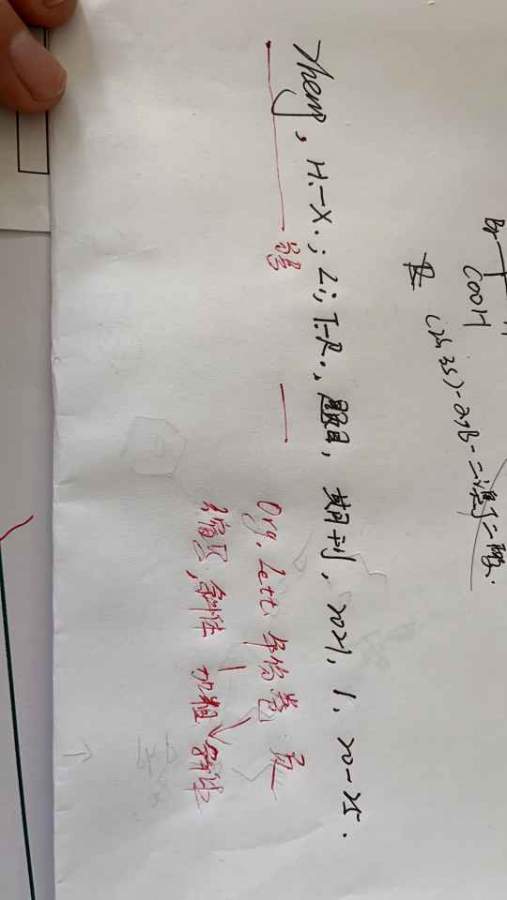 Br
COOH
(2R,3S)-2,3-二溴丁二酸.
Zheng, H.-X.; Li, T.-R., 题目, 期刊, 2021, 1, 20-25.
Org. Lett. 年份 卷 页
缩写,斜体 加粗 斜体